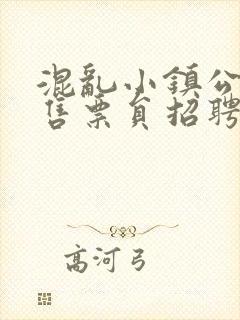 混亂小鎮公
售票員招聘
高河弓